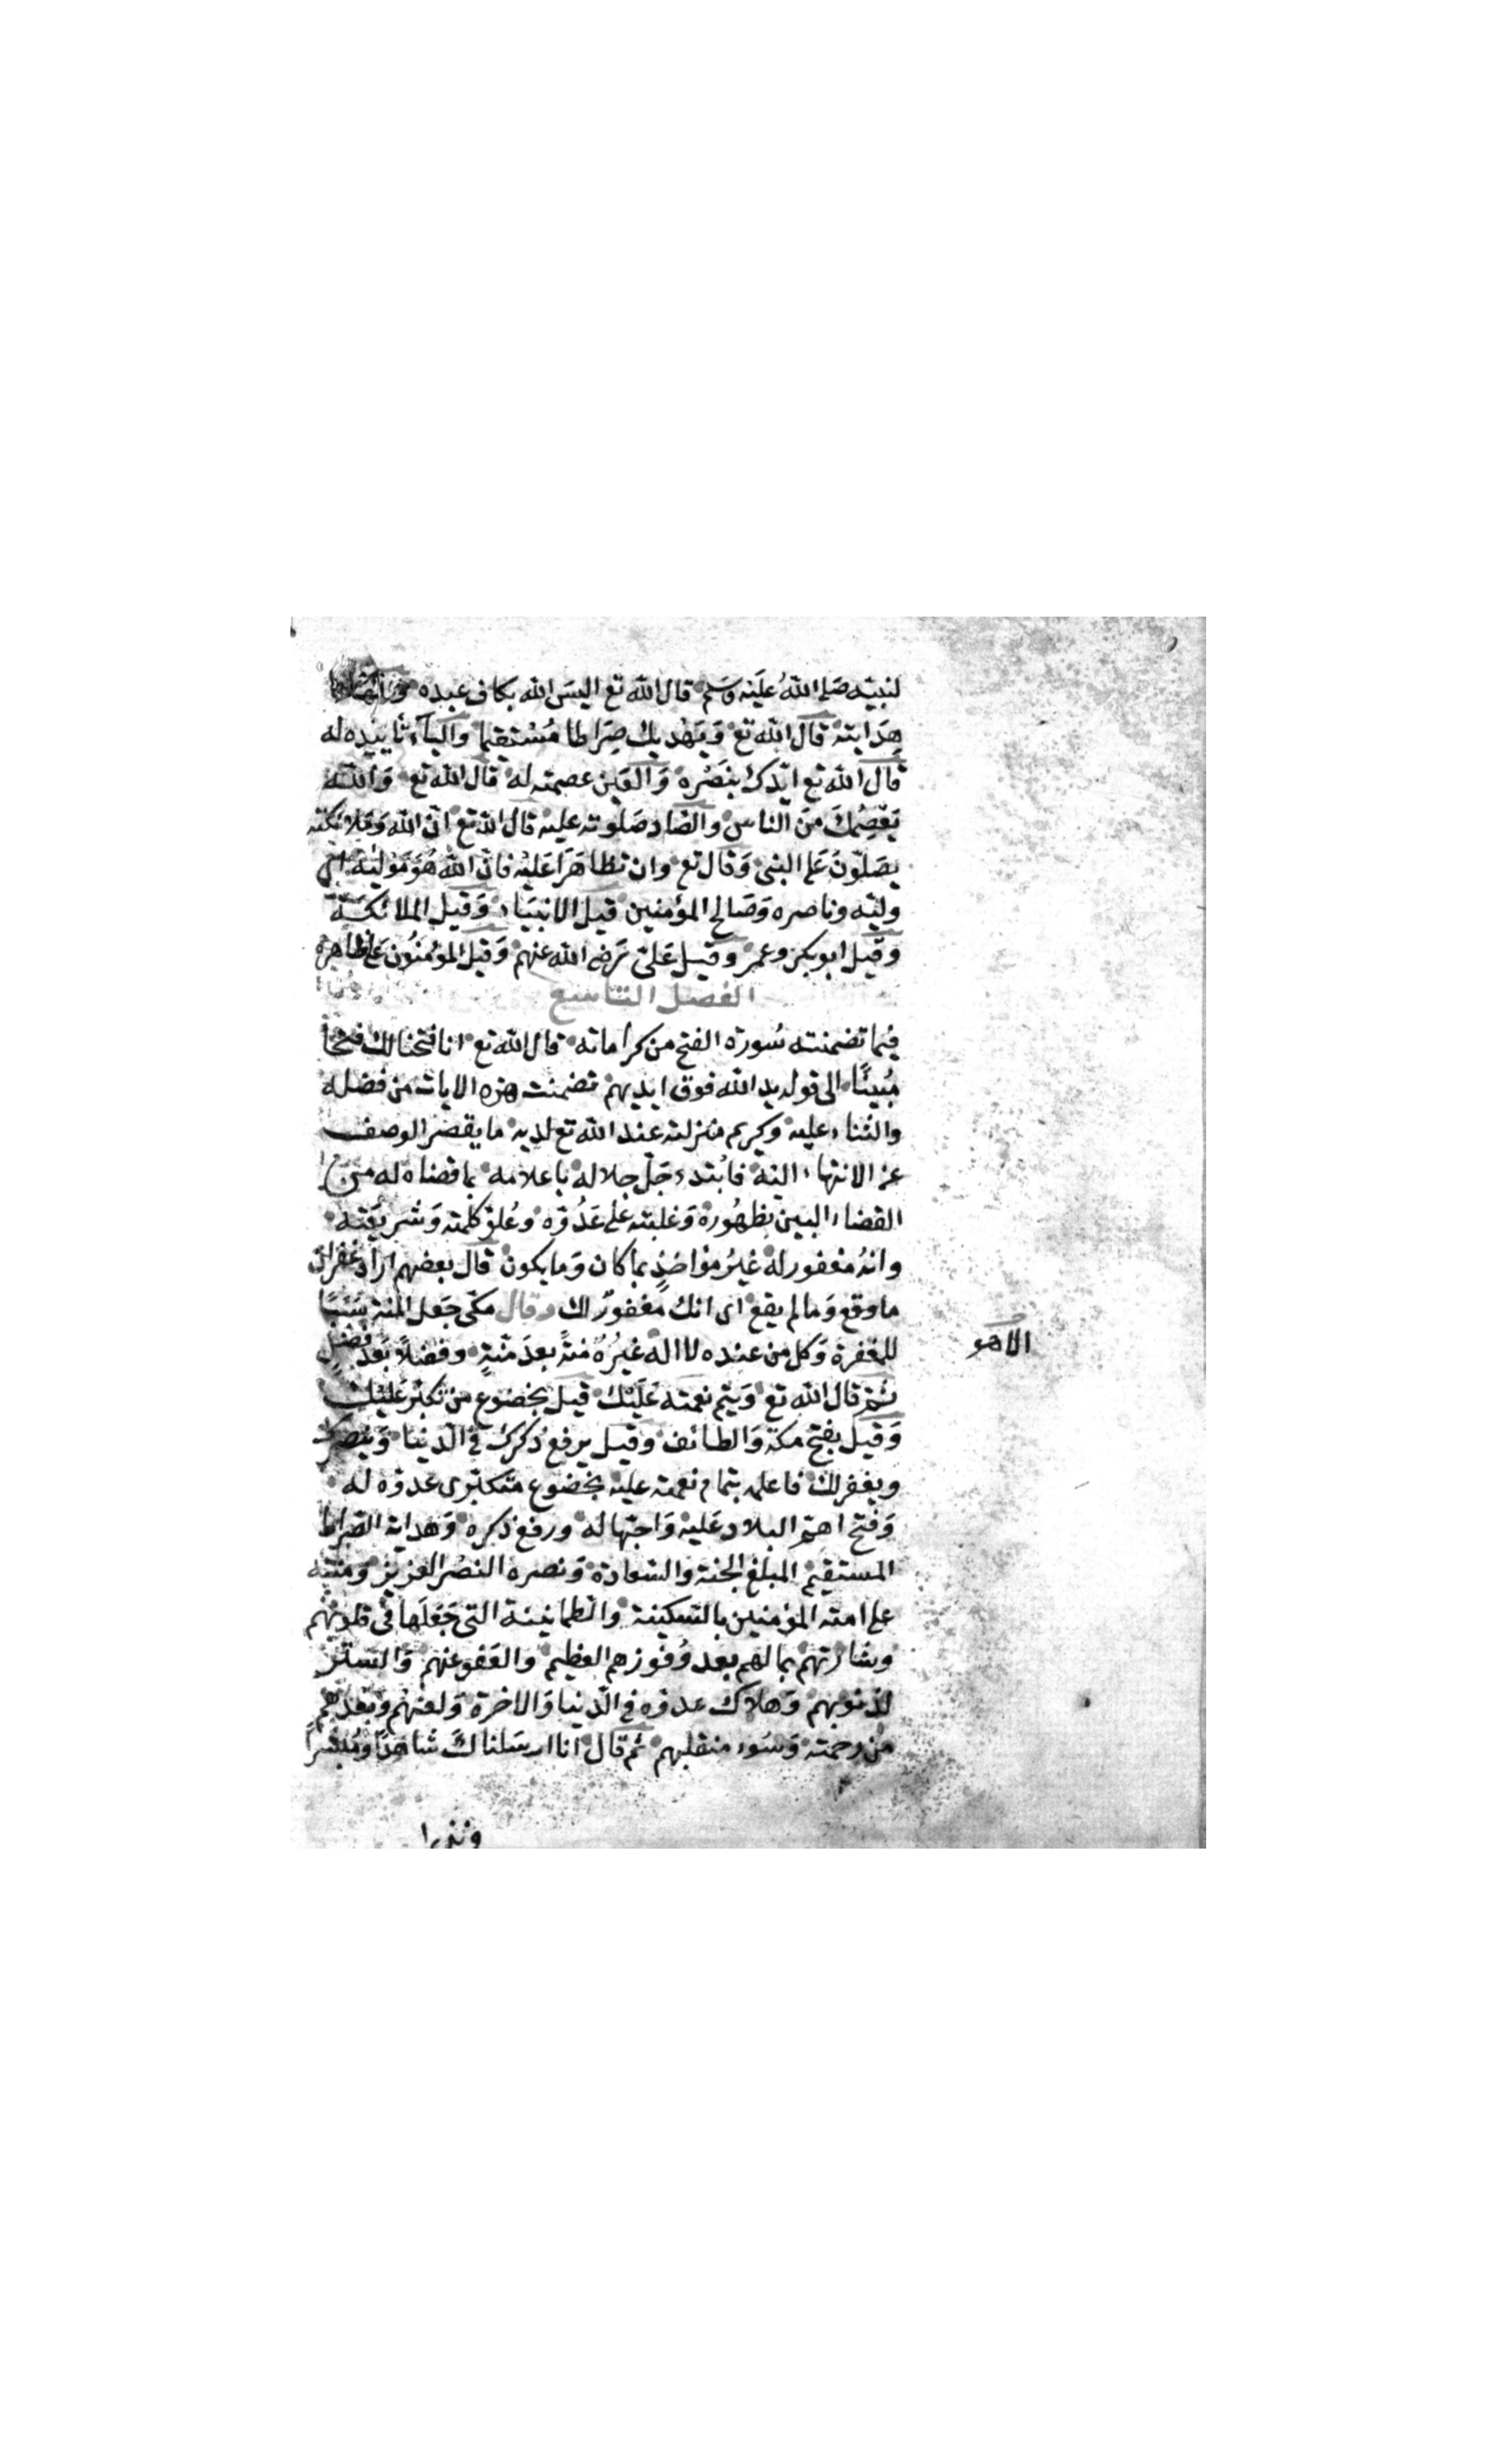 لنبيّه صَلى اللهُ عليْه وسَلم قال الله تع اليسَ الله بكاف عبده
هِدَايته قال الله تع وَيَهْديك صِرَاطا مُسْتقيما والياء تاييده له
قال الله تع ايّدك بنَصْره وَالعَين عصمته له قال الله تع وَالله
يَعْصِمُكَ منَ الناس والصّاد صَلوته عليه قال الله تع ان الله وَملائكته
يصَلّونَ عَلى النبى وَقال تع وان تظاهَرَا عَليْه فانّ الله هُوَ مَوْليه اى
وليّه وناصره وَصَالح المؤمنين قيل الانبيَاء وَقيل الملائكة
وقيل ابو بكر وعمر وقيل عَلىّ رَضى الله عنهم وَقيل المؤمنُون عَلى ظاهره
الفصل التاسع
فيْما تضمنته سُورة الفتح من كراماته قال الله تع انا فتحنا لك فتحا
مُبينًا الى قوله يد الله فوق ايديهم تضمنت هذه الايات من فضله
والثناء عليه وكريم منزلته عند الله تع لديه ما يقصر الوصف
عن الانتهاء اليْه فابْتدء جَلّ جلاله باعلامه بما قضاه له من
القضاء البين بظهُوره وَغلبته على عَدُوّه وعُلوّ كلمته وَشريعَته
وانهُ مغفور له غيْرُ مؤاخذٍ بما كان وَما يكون قال بعضهم اراد غفران
ما وقع وَما لم يقع اى انك مغفورٌ لك وقال مكى جَعل المنة سَبَبًا
للمغفرة وَكل من عنده لا اله غيْرُهُ منةً بعدَ منّةٍ وفضلاً بَعْد فضلٍ
ثُمّ قال الله تع وَيتم نعمته عَلَيْك قيل بخضوع من تكبّر عَليْك
وَقيل بفتح مكة وَالطائف وقيل يرفع ذكرك فى الدّنيا وَينصرك
ويغفر لك فاعلمه بتمام نعمته عليه بخضوع متكبّرى عدوّه له
وَفتح اهمّ البلاد عَليْه وَاحبّها له ورفع ذكره وَهداية الصّراط
المستقيم المبلغ الجنة والسّعادة وَنصره النصْر العزيز وَمنته
على امته المؤمنين بالسّكينة والطمانينة التى جَعَلَها فى قلوبهم
وبشارتهم بما لهم بعد وَفوزهم العظيم والعَفو عنهم وَالستر
لذنوبهم وَهلاك عدوّه فى الدّنيا وَالاخرة وَلعنهم وَبعدهم
من رحمته وَسُوء منقلبهم ثم قال انا ارسَلناك شاهدًا وَمُبشرًا
ونذيرا